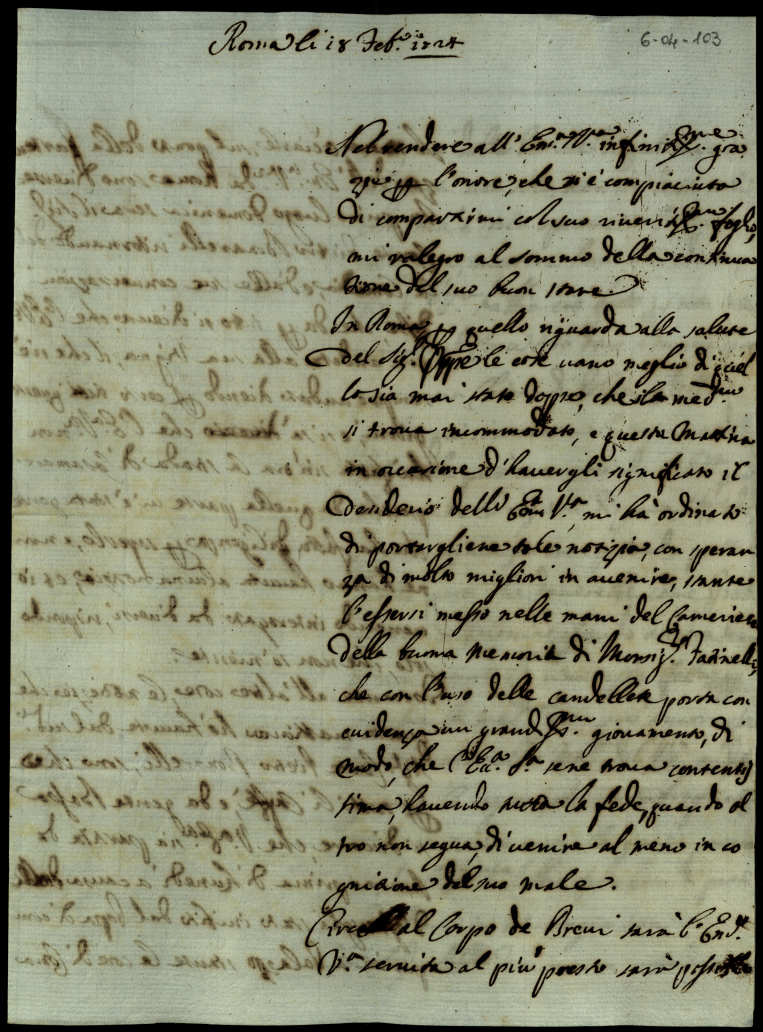 Roma li 18 Feb.º 1724
6-04-103
Nel rendere all' Em.ª V.ª infinitiss.me gra
zie p l'onore, che si è compiaciuta
di compartirmi col suo riveritiss.mo foglio,
mi ralegro al sommo della continua
zione del suo buon stare.
In Roma p quello riguarda alla salute
del Sig.r le cose vano meglio di quel
lo sia mai state doppo, che il med.mo
si trova incommodato, e questa Mattina
in occasione d'havergli significato il
desiderio dell' Em.za V.ª, mi hà ordinato
di portargliene tale notizia, con speran
za di molto migliori in avenire, stante
l'essersi messo nelle mani del Cameriere
della buona memoria di Monsig.r Farinelli,
che con l'uso delle candellete porta con
evidenza un grandiss.mo giovamento, di
modo, che l'Ecc.ª S.ª se ne trova contentis
sima, havendo tutta la fede, quando al
tro non segua, di venire al meno in co
gnizione del suo male.
Circa al Corpo de Brevi sarà l'Em.za
V.ª servita al più presto sarà possibile